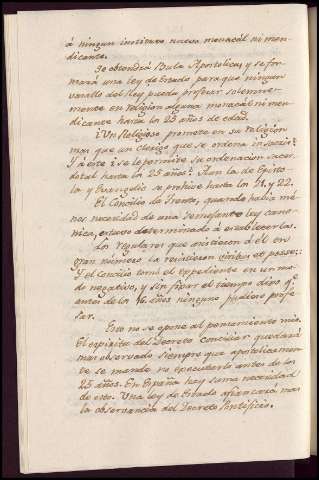 á ningun instituto nuevo monacál ni men-
dicante.
Se obtendrá Bula Apostolica, y se for-
mará una ley de Estado para que ningun
vasallo del Rey pueda profesar solemne-
mente en religion alguna monacál ni men-
dicante hasta los 25 años de edad.
¿Un Religioso promete en su religion
mas que un Clerigo que se ordena in sacris?
Y á este ¿se le permite su ordenacion sacer-
dotal hasta los 25 años? Aun la de Episto-
la y Evangelio se prohive hasta los 21, y 22.
El Concilio de Trento, quando habia me-
nos necesidad de una semejante ley cano-
nica, estuvo determinado á establecerla.
Los regulares que asistieron á él en
gran numero la resistieron viribus et posse:
Y el Concilio tomó el expediente en un mo-
do negativo, y sin fixar el tiempo dixo q.e
antes de los 16. años ninguno pudiese profe-
sar.
Esto no se opone al pensamiento mio.
El espiritu del Decreto Conciliar quedará
mas observado siempre que apostolicamen-
te se mande no executarlo antes de los
25 años. En España hay suma necesidad
de esto. Una ley de Estado afianzará mas
la observancia del Decreto Pontificio.